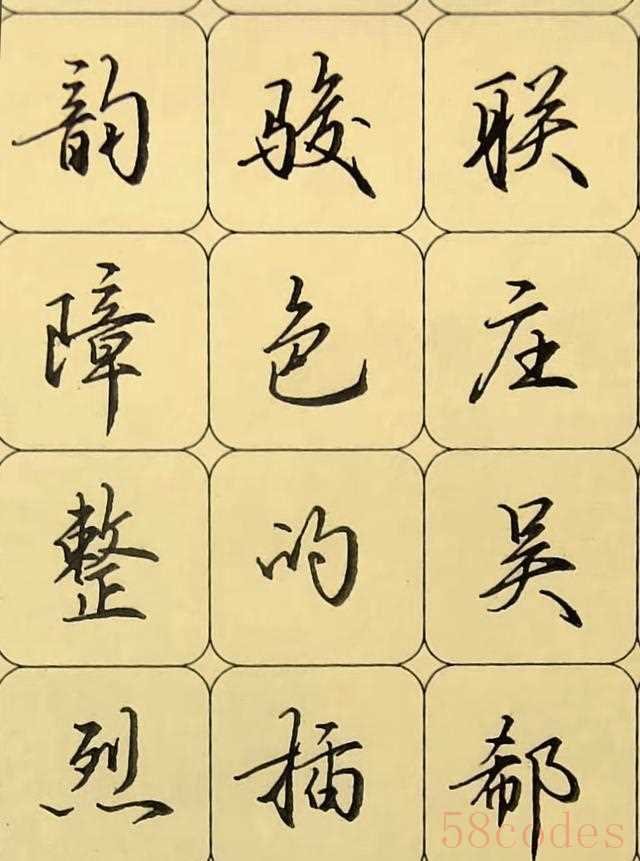 韵 骏 联
障 色 庄
整 的 吴
烈 插 郗
58codes